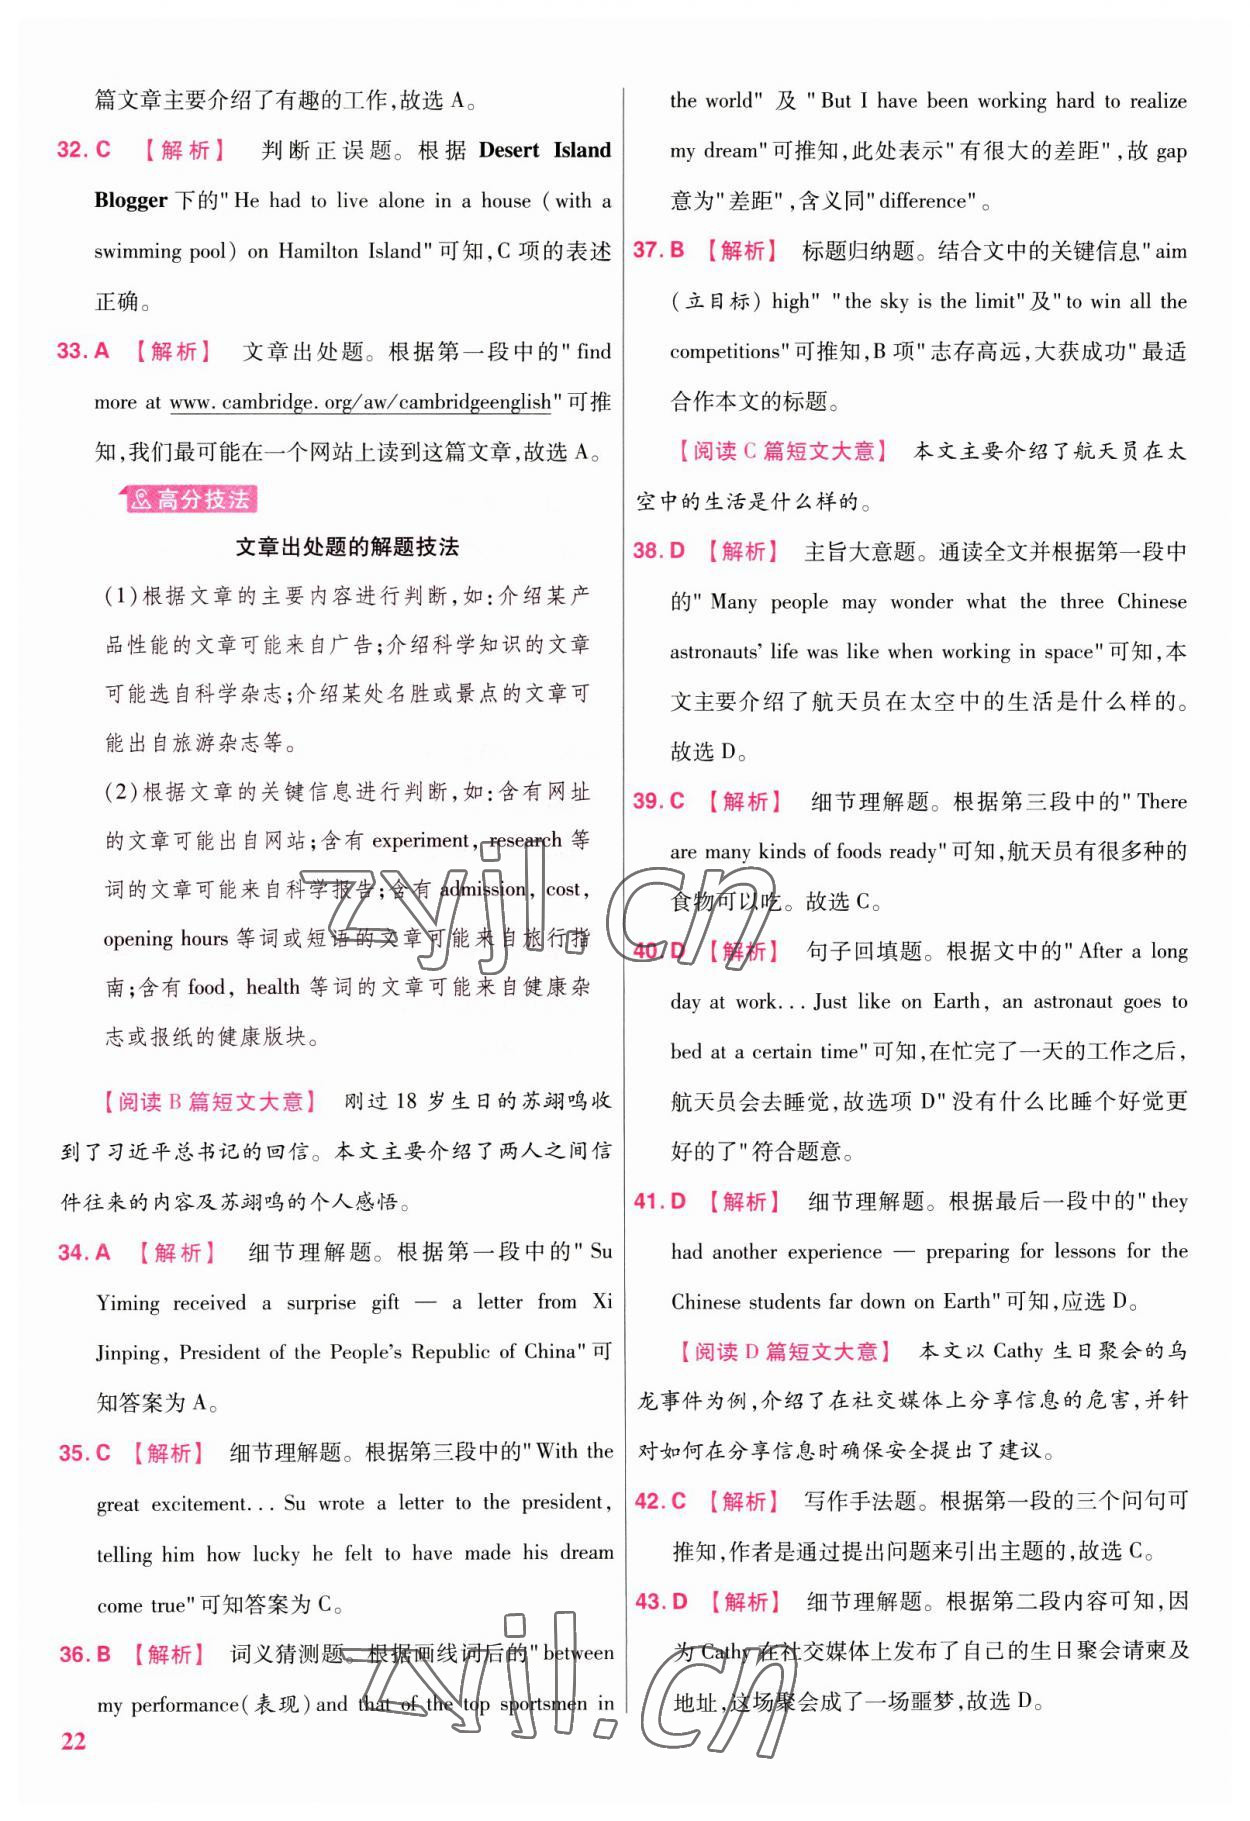 篇文章主要介绍了有趣的工作,故选 A。
32. C 【解析】 判断正误题。根据 Desert Island
Blogger 下的"He had to live alone in a house (with a
swimming pool) on Hamilton Island"可知,C 项的表述
正确。
33. A 【解析】 文章出处题。根据第一段中的"find
more at www. cambridge. org/aw/cambridgeenglish"可推
知,我们最可能在一个网站上读到这篇文章,故选 A。
高分技法
文章出处题的解题技法
(1)根据文章的主要内容进行判断,如:介绍某产
品性能的文章可能来自广告;介绍科学知识的文章
可能选自科学杂志;介绍某处名胜或景点的文章可
能出自旅游杂志等。
(2)根据文章的关键信息进行判断,如:含有网址
的文章可能出自网站;含有 experiment, research 等
词的文章可能来自科学报告;含有 admission, cost,
opening hours 等词或短语的文章可能来自旅行指
南;含有 food, health 等词的文章可能来自健康杂
志或报纸的健康版块。
【阅读 B 篇短文大意】 刚过 18 岁生日的苏翊鸣收
到了习近平总书记的回信。本文主要介绍了两人之间信
件往来的内容及苏翊鸣的个人感悟。
34. A 【解析】 细节理解题。根据第一段中的"Su
Yiming received a surprise gift — a letter from Xi
Jinping, President of the People's Republic of China"可
知答案为 A。
35. C 【解析】 细节理解题。根据第三段中的"With the
great excitement... Su wrote a letter to the president,
telling him how lucky he felt to have made his dream
come true"可知答案为 C。
36. B 【解析】 词义猜测题。根据画线词后的"between
my performance(表现)and that of the top sportsmen in
22
the world" 及 "But I have been working hard to realize
my dream"可推知,此处表示"有很大的差距",故 gap
意为"差距",含义同"difference"。
37. B 【解析】 标题归纳题。结合文中的关键信息"aim
(立目标) high" "the sky is the limit"及"to win all the
competitions"可推知,B 项"志存高远,大获成功"最适
合作本文的标题。
【阅读 C 篇短文大意】 本文主要介绍了航天员在太
空中的生活是什么样的。
38. D 【解析】 主旨大意题。通读全文并根据第一段中
的"Many people may wonder what the three Chinese
astronauts' life was like when working in space"可知,本
文主要介绍了航天员在太空中的生活是什么样的。
故选 D。
39. C 【解析】 细节理解题。根据第三段中的"There
are many kinds of foods ready"可知,航天员有很多种的
食物可以吃。故选 C。
40. D 【解析】 句子回填题。根据文中的"After a long
day at work... Just like on Earth, an astronaut goes to
bed at a certain time"可知,在忙完了一天的工作之后,
航天员会去睡觉,故选项 D"没有什么比睡个好觉更
好的了"符合题意。
41. D 【解析】 细节理解题。根据最后一段中的"they
had another experience — preparing for lessons for the
Chinese students far down on Earth"可知,应选 D。
【阅读 D 篇短文大意】 本文以 Cathy 生日聚会的乌
龙事件为例,介绍了在社交媒体上分享信息的危害,并针
对如何在分享信息时确保安全提出了建议。
42. C 【解析】 写作手法题。根据第一段的三个问句可
推知,作者是通过提出问题来引出主题的,故选 C。
43. D 【解析】 细节理解题。根据第二段内容可知,因
为 Cathy 在社交媒体上发布了自己的生日聚会请柬及
地址,这场聚会成了一场噩梦,故选 D。
zyjl.cn
zyjl.cn